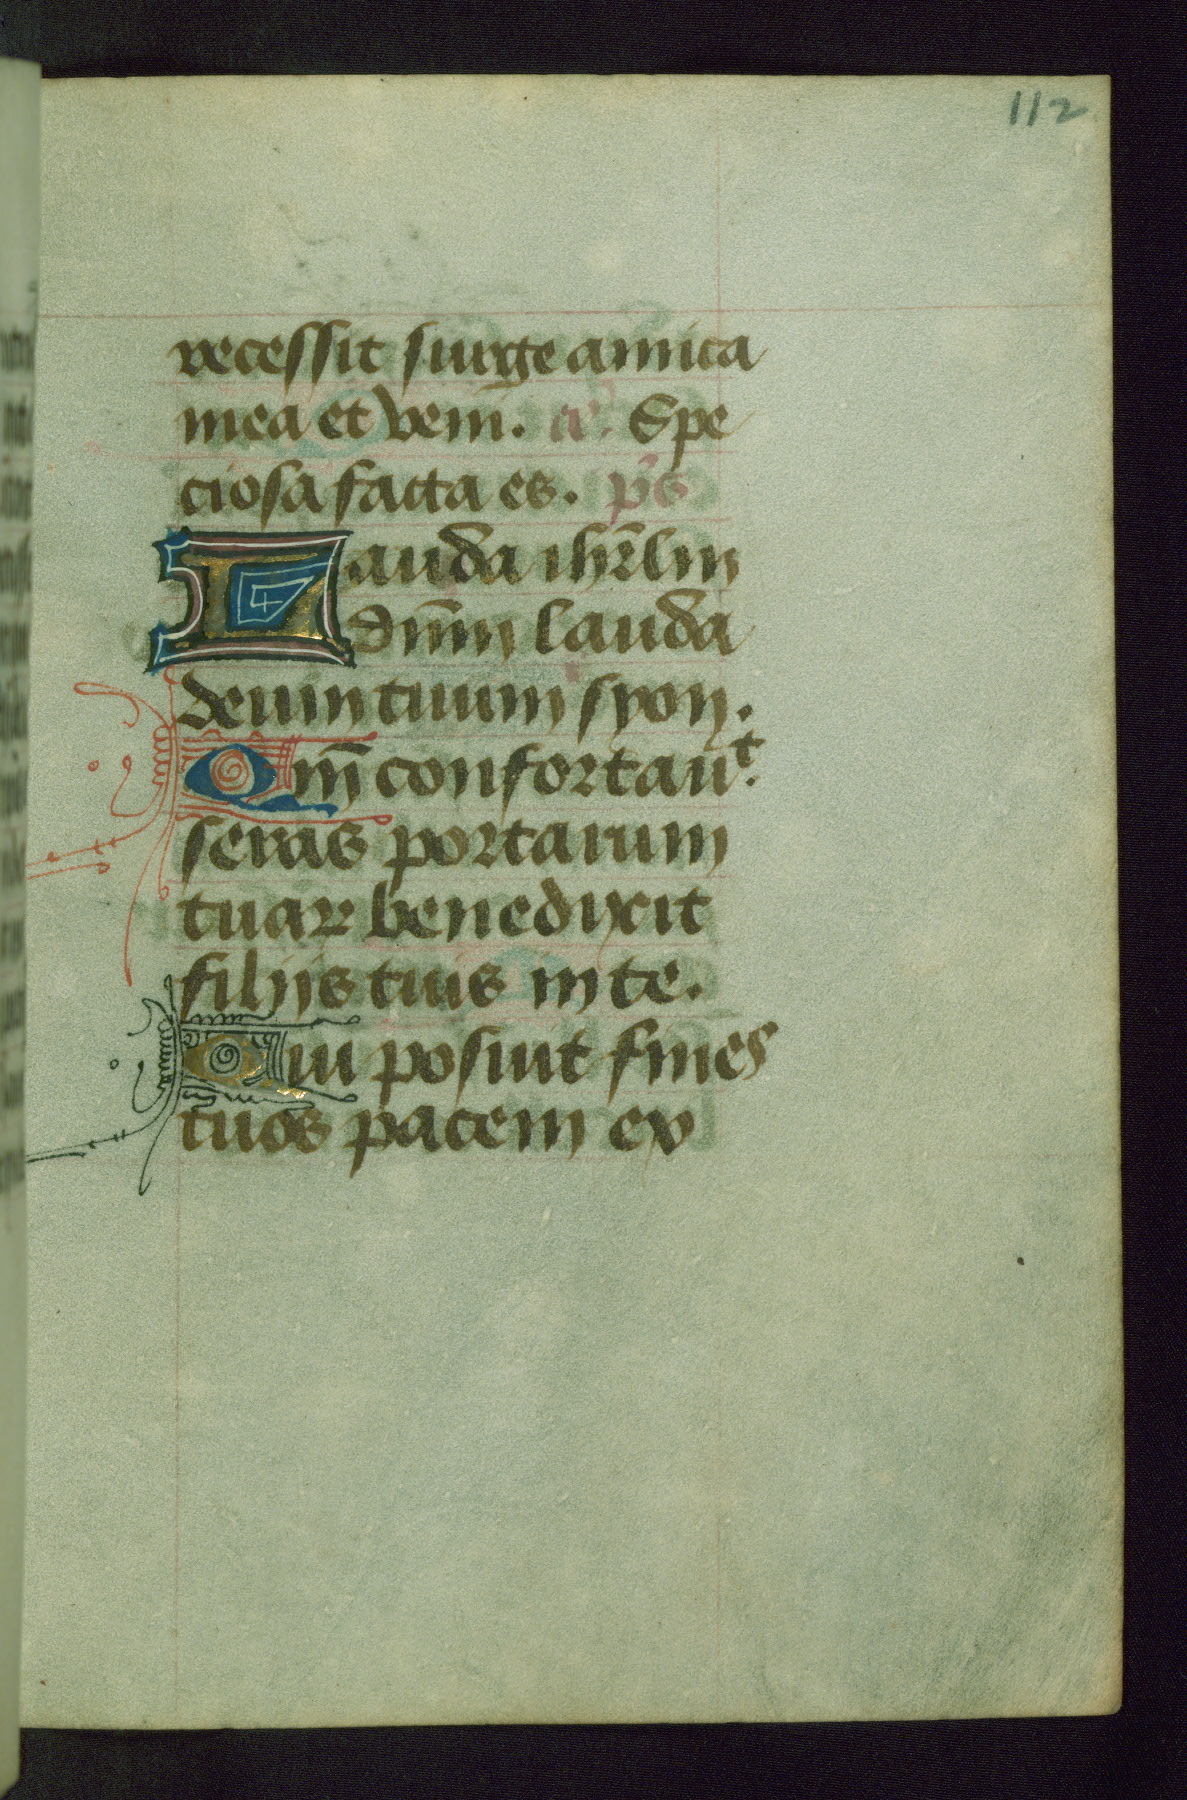 112
recessit surge amica
mea et veni. a͞. Spe
ciosa facta es. p̄s
Lauda ihr̄lm
dn̄m lauda
deum tuum syon.
Qm̄ confortauͭ.
seras portarum
tuaꝝ benedixit
filijs tuis in te.
Qui posuit fines
tuos pacem ex